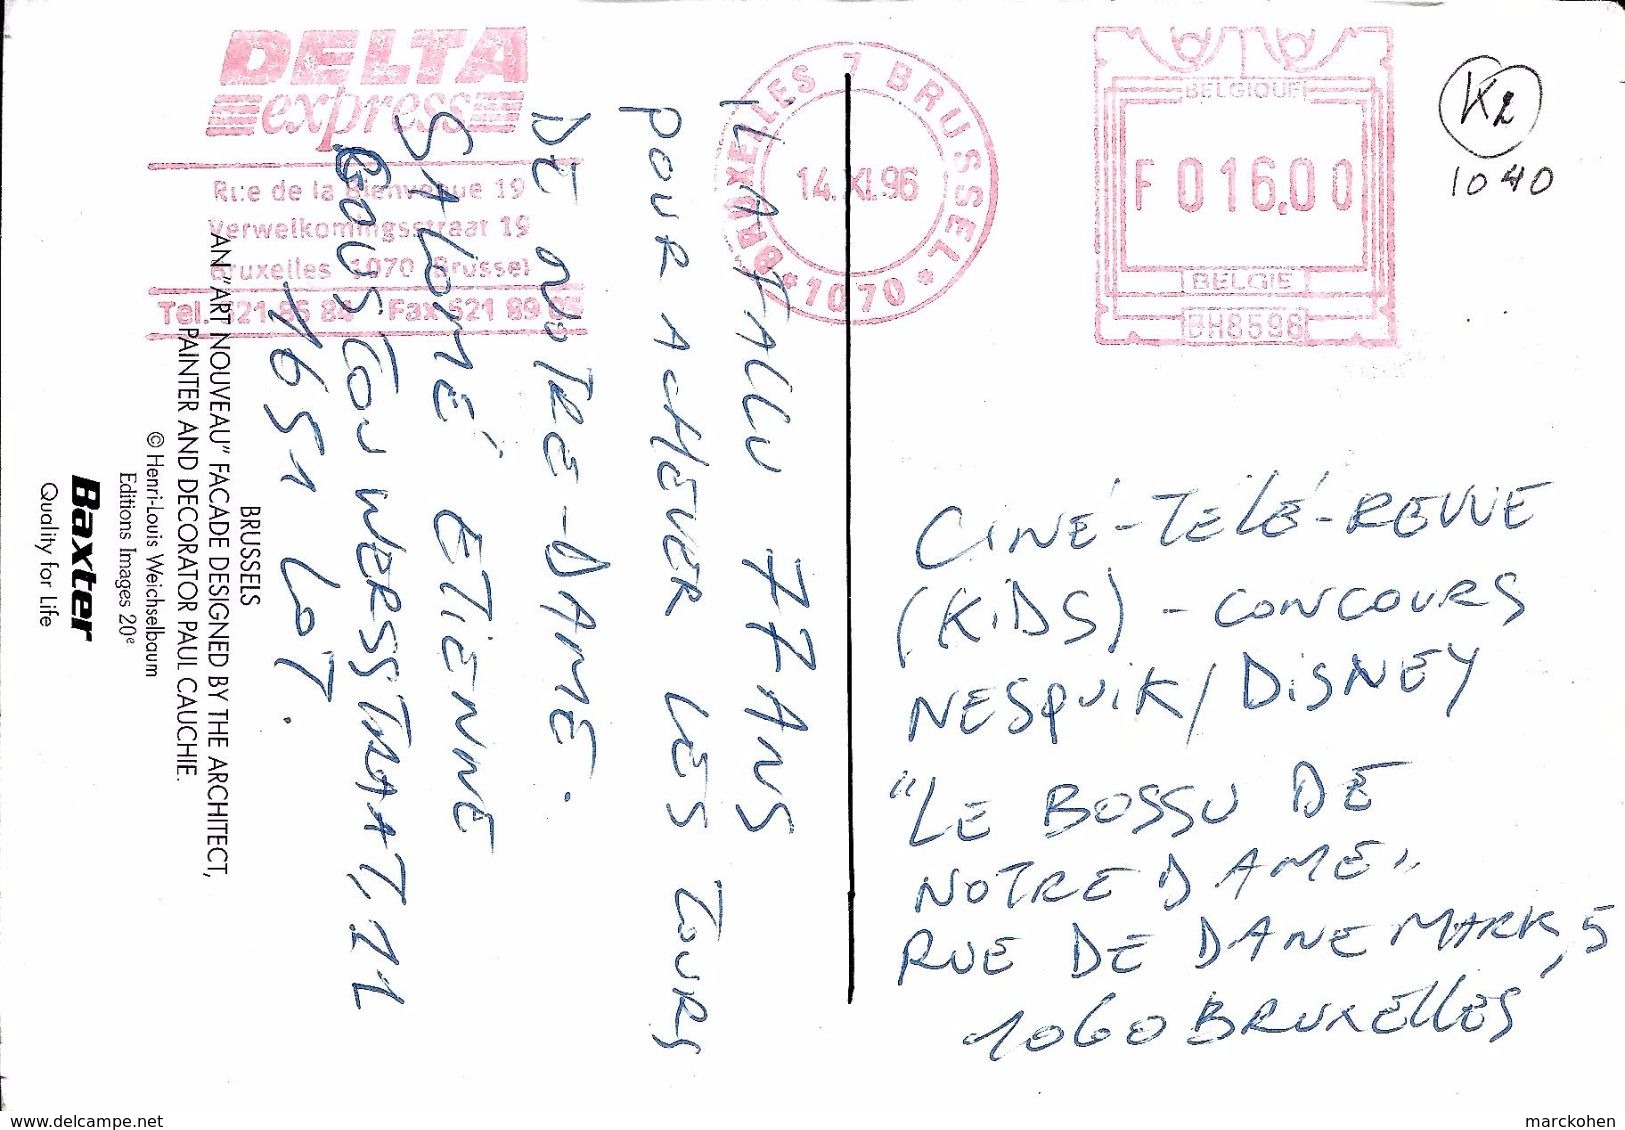 DELTA
express
Rue de la Bienvenue 19
Verwelkomingsstraat 19
Bruxelles 1070 Brussel
Tel. 521 86 84 Fax 521 89
BRUXELLES 7 BRUSSEL
14. XI.96
* 1070 *
BELGIQUE
F 016.00
BELGIE
BH8598
K2
1040
IL A FALLU 77 ANS
POUR ACHEVER LES TOURS
DE NOTRE-DAME.
SALOMÉ ETIENNE
1651 LOT.
CINÉ-TÉLÉ-REVUE
(KiDS) - CONCOURS
NESQUiK/DiSNEY
"LE BOSSU DE
NOTRE DAME"
RUE DE DANEMARK, 5
1060 BRUXELLES
BRUSSELS
AN "ART NOUVEAU" FACADE DESIGNED BY THE ARCHITECT,
PAINTER AND DECORATOR PAUL CAUCHIE.
© Henri-Louis Weichselbaum
Editions Images 20e
Baxter
Quality for Life
www.delcampe.net
marckohen